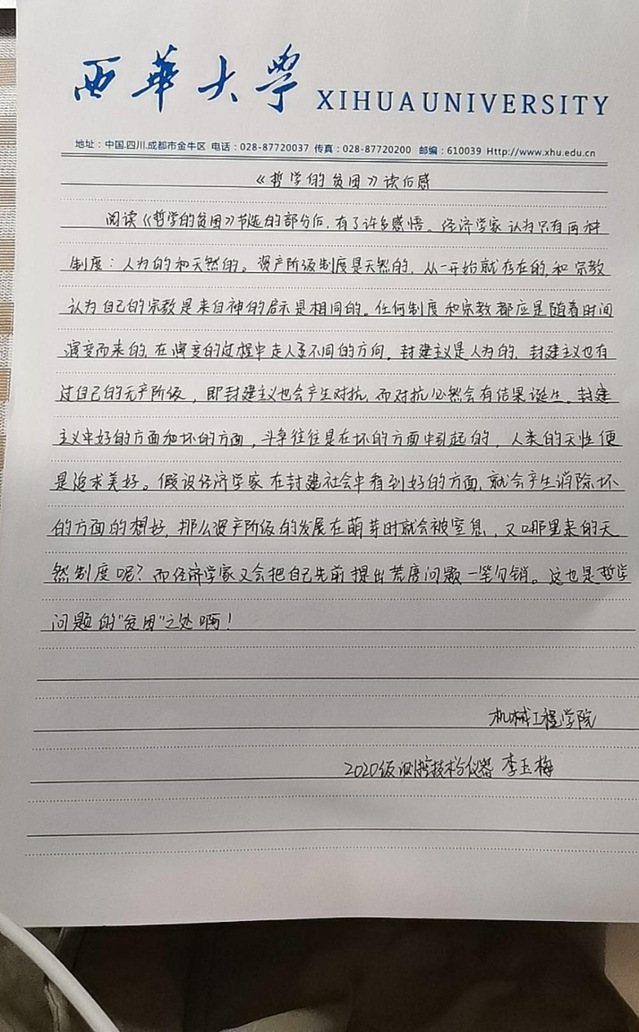 西華大學 XIHUA UNIVERSITY
地址：中国.四川.成都市金牛区 电话：028-87720037 传真：028-87720200 邮编：610039 Http://www.xhu.edu.cn
《哲学的贫困》读后感
阅读《哲学的贫困》节选的部分后，有了许多感悟。经济学家认为只有两种
制度：人为的和天然的。资产阶级制度是天然的，从一开始就存在的，和宗教
认为自己的宗教是来自神的启示是相同的。任何制度和宗教都应是随着时间
演变而来的，在演变的过程中走入了不同的方向。封建主义是人为的，封建主义也有
过自己的无产阶级，即封建主义也会产生对抗，而对抗必然会有结果诞生。封建
主义中好的方面和坏的方面，斗争往往是在坏的方面中引起的，人类的天性便
是追求美好。假设经济学家在封建社会中看到好的方面，就会产生消除坏
的方面的想好，那么资产阶级的发展在萌芽时就会被窒息，又哪里来的天
然制度呢？而经济学家又会把自己先前提出荒唐问题一笔勾销。这也是哲学
问题的“贫困”之处啊！
机械工程学院
2020级测控技术与仪器 李玉梅